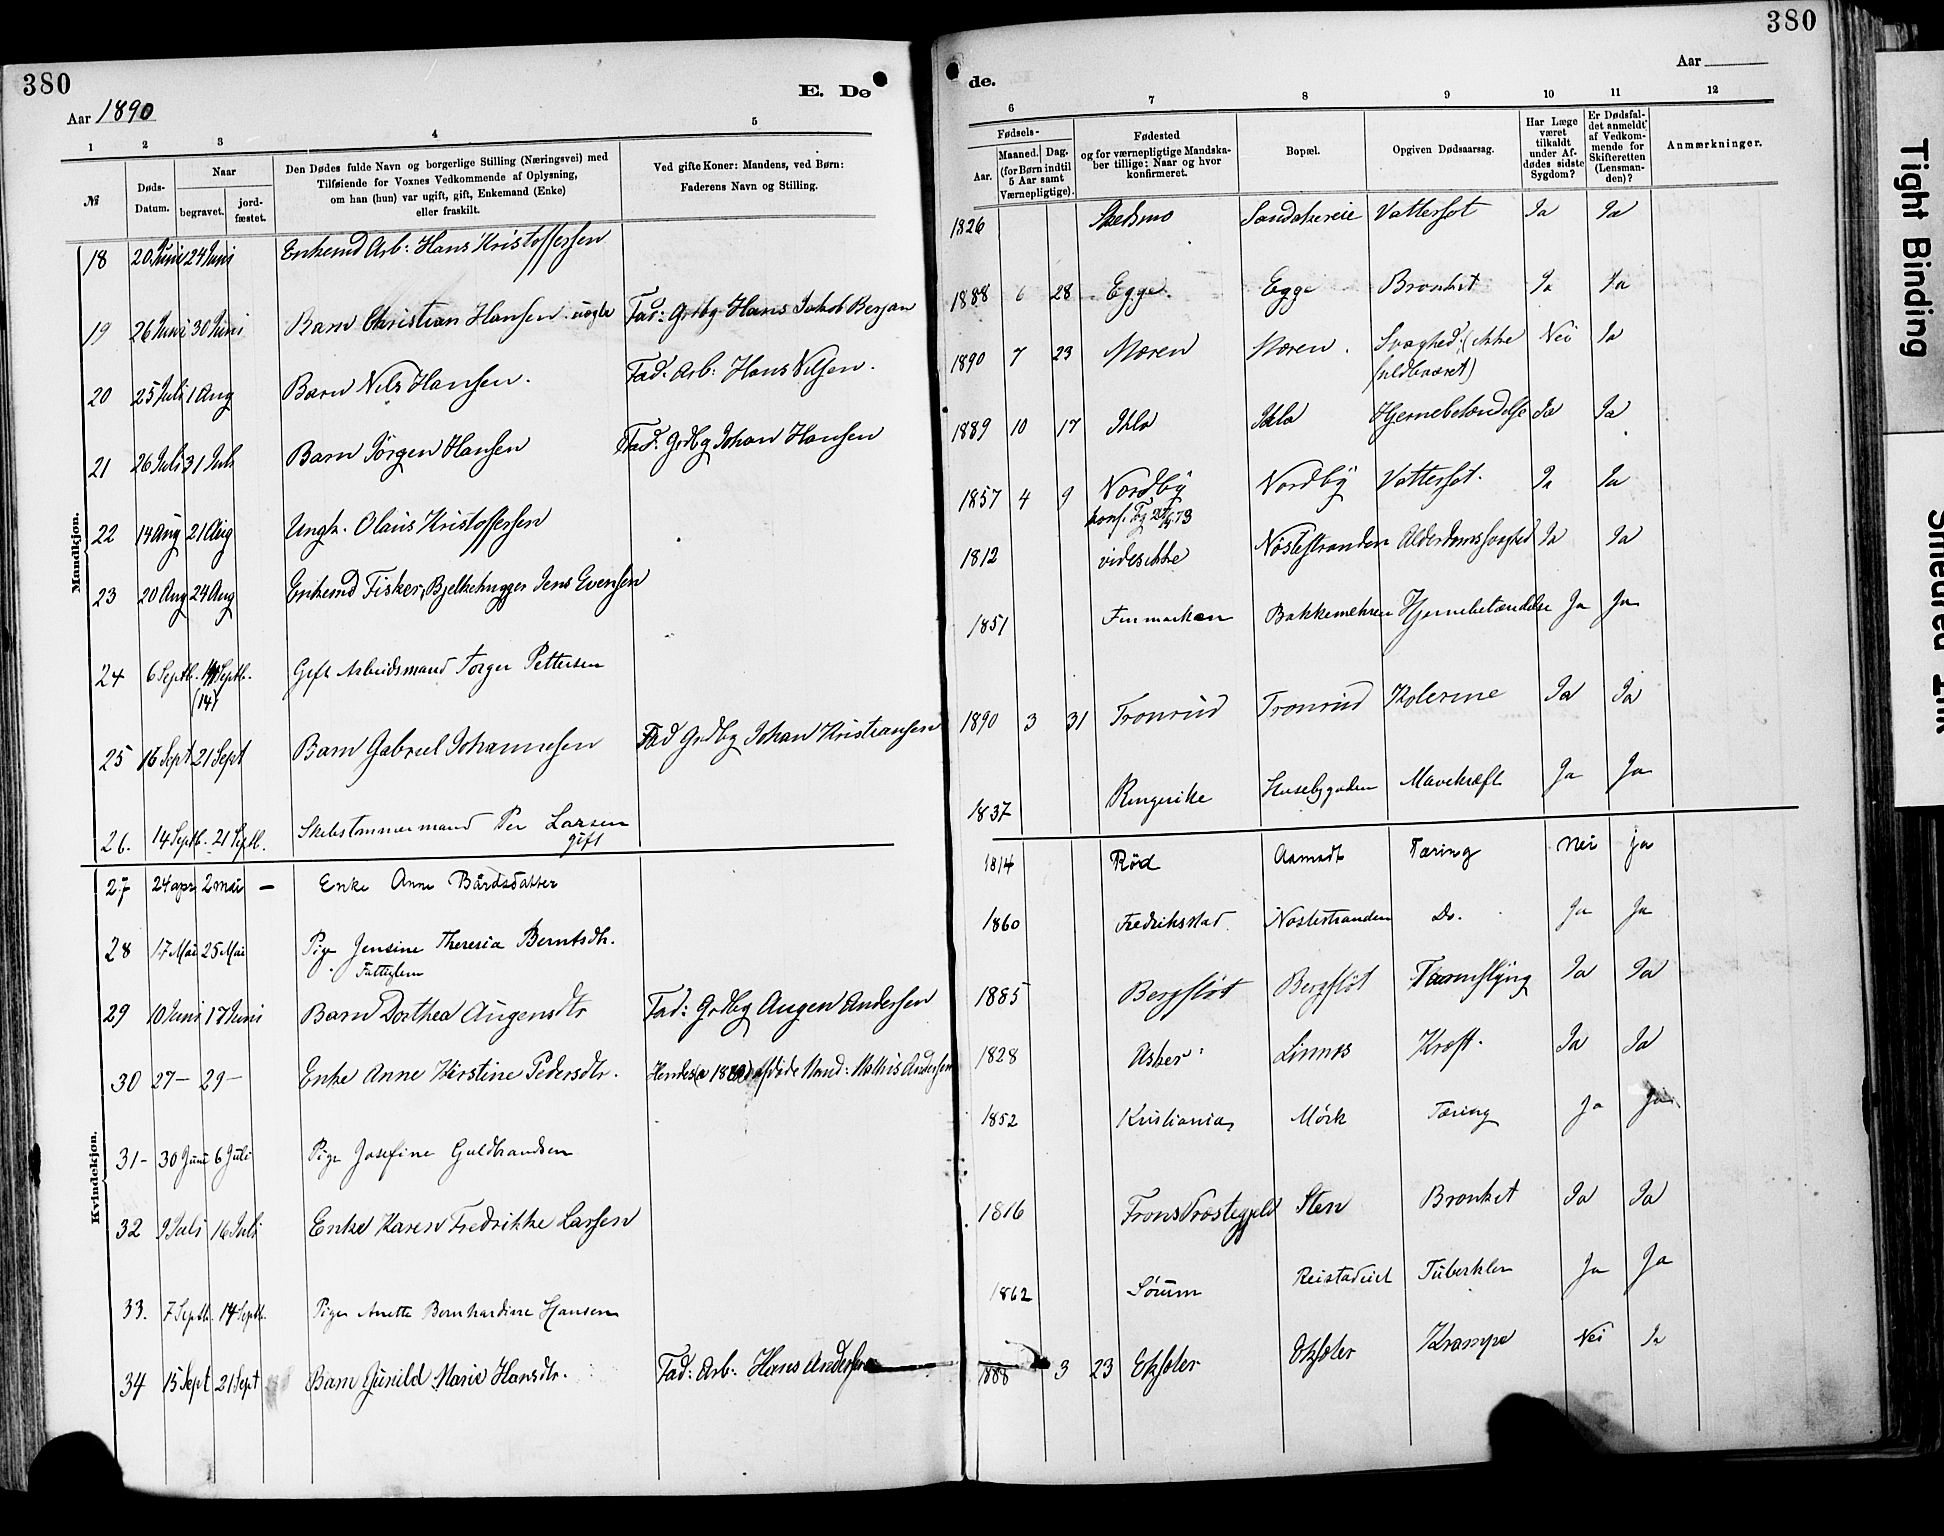 380
Aar 1890
E. Dø
1 2 3 4 5
№
Døds-Datum.
Naar
begravet.
jord-fæstet.
Den Dødes fulde Navn og borgerlige Stilling (Næringsvei) med
Tilføiende for Voxnes Vedkommende af Oplysning,
om han (hun) var ugift, gift, Enkemand (Enke)
eller fraskilt.
Ved gifte Koner: Mandens, ved Børn:
Faderens Navn og Stilling.
Mandkjøn.
18 20 Juni 24 Juni Enkemd Arb: Hans Kristoffersen
19 26 Juni 30 Juni Barn Christian Hansen Fad: Grdbg Hans Jakob Bersan
20 25 Juli 1 Aug Barn Nils Hansen. Fad. Arb: Hans Nilsen.
21 26 Juli 31 Juli Barn Jörgen Hansen Fad: Grdbg Johan Hansen
22 14 Aug 21 Aug Ungk. Olaus Kristoffersen
23 20 Aug 24 Aug Enkemd Fisker, Bjelkehugger Jens Evensen
24 6 Septb. 14 Septb. Gift Arbeidsmand Torger Pettersen
(14)
25 16 Sept 21 Sept Barn Gabriel Johannesen Fad Grdbg Johan Kristiansen
26. 14 Septb. 21 Septb. Skibstømmermand Per Larsen
gift
Kvindekjøn.
27 24 apr 2 mai — Enke Anne Bårdsdatter
28 17 Mai 25 Mai Pige Jensine Theresia Berntsdtr.
Fattiglem
29 10 Juni 17 Juni Barn Dorthea Augensdtr Fad: Grdbg Augen Andersen
30 27 — 29 — Enke Anne Kirstine Pedersdtr. Hendes afdöde Mand: Mathis Andersen
31 - 30 Juni 6 Juli Pige Josefine Guldbrandsen
32 9 Juli 16 Juli Enke Karen Fredrikke Larsen
33. 7 Septb. 14 Septb. Pige Anette Bernhardine Hansen
34 15 Sept 21 Sept Barn Gunild Marie Hansdtr. Fad: Arb: Hans Andersen
380
Aar
de.
6 7 8 9 10 11 12
Fødsels-
Aar.
Maaned.
Dag.
(for Børn indtil
5 Aar samt
Værnepligtige).
Fødested
og for værnepligtige Mandska-
ber tillige: Naar og hvor
konfirmeret.
Bopæl.
Opgiven Dødsaarsag.
Har Læge
været
tilkaldt
under Af-
dødes sidste
Sygdom?
Er Dødsfal-
det anmeldt
af Vedkom-
mende for
Skifteretten
(Lensman-
den)?
Anmærkninger.
1826 Skedsmo Sandakereie Vattersot Ja Ja
1888 6 28 Egge. Egge Bronkit Ja Ja
1890 7 23 Moren Moren. Svaghed. (ikke Nei Ja
fuldbaaret)
1889 10 17 Ihla Ihla Hjernebetændelse Ja Ja
1857 4 9 Nordby Nordby Vattersot. Ja Ja
konf.
1812 vides ikke Nöstestranden Alderdomssvaghed Ja Ja
1851 Finmarken Bakkemehren Hjernebetændelse Ja Ja
1890 3 31 Tronrud Tronrud Kolerine Ja Ja
1837 Ringerike Husebygaden Mavekræft Ja Ja
1814 Röd Aamodt Tæring Nei ja
1860 Fredriksstad Nöstestranden Do. Ja Ja
1885 Bergflöt Bergflöt Tarmslyng Ja Ja
1828 Asker Linnes Kræft. Ja Ja
1852 Kristiania, Mörk Tæring Ja Ja
1816 Frons Præstegjeld Sten Bronkit Ja Ja
1862 Sörum Reistadeiet Tuberkler Ja Ja
1888 3 23 Eksæter Oksæter Krampe Nei Ja
Tight Binding
Smeared Ink